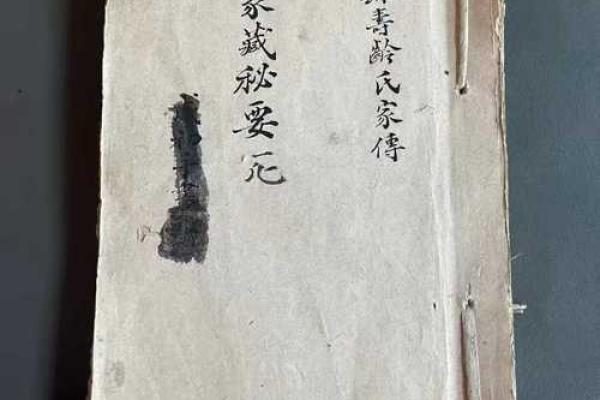 壽齡氏家傳
家藏秘要